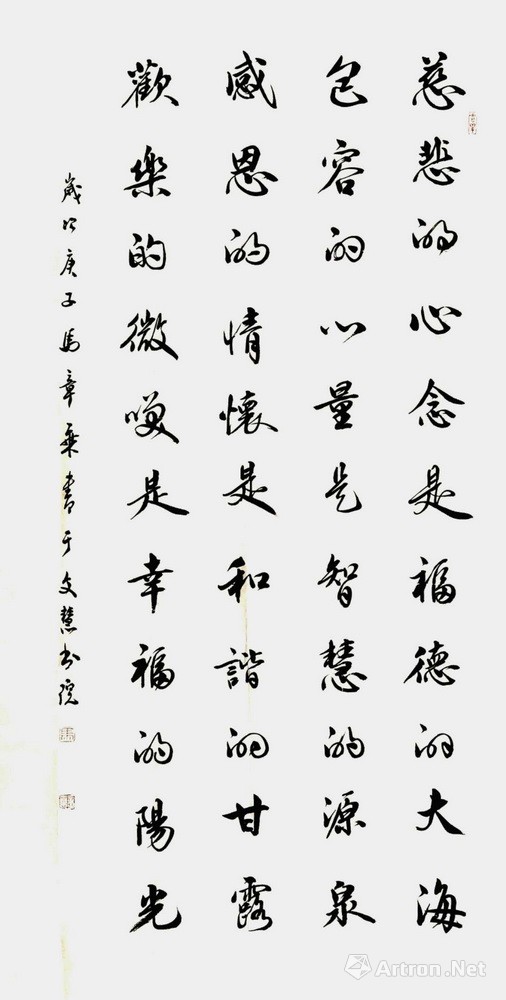 慈悲的心念是福德的大海
包容的心量是智慧的源泉
感恩的情懷是和諧的甘露
歡樂的微笑是幸福的陽光
歲次庚子馬章乗書于文慧书院
Artron.Net